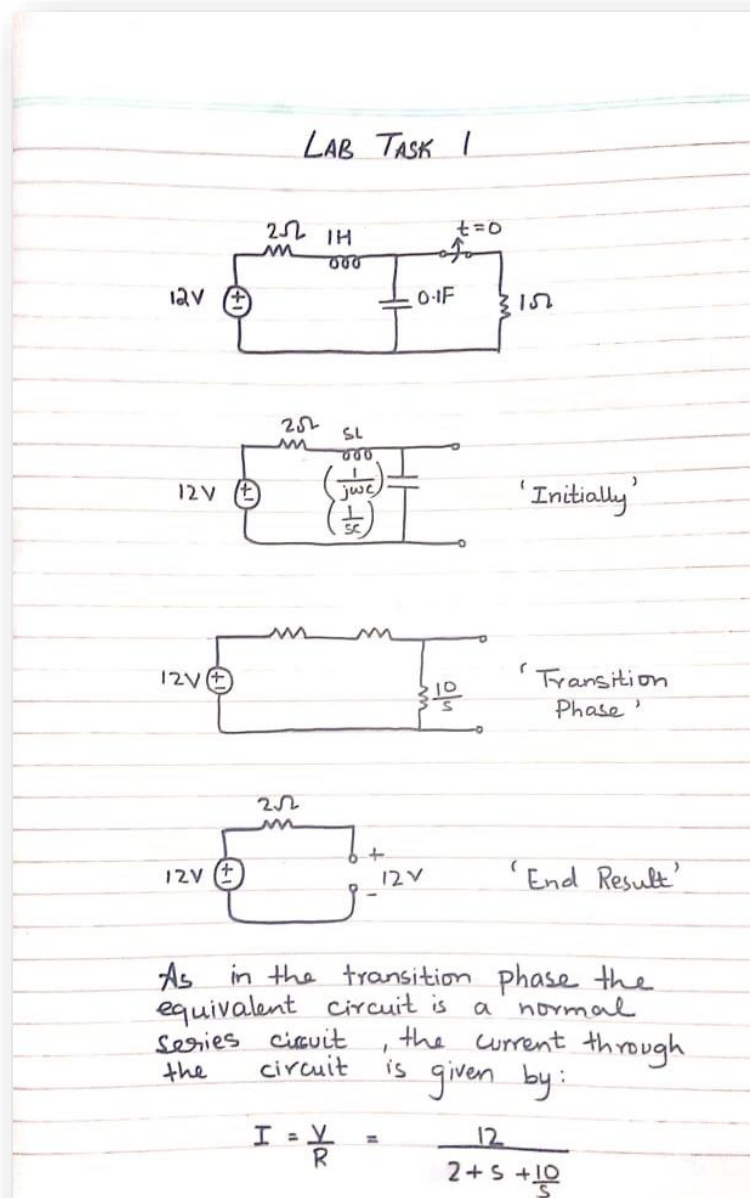 LAB TASK 1
2Ω 1H t=0
12V + - 0.1F 1Ω
2Ω SL
12V + - (1/jωc) 'Initially'
(1/sc)
12V + - 10/s 'Transition
Phase'
2Ω
12V + - + 12V - 'End Result'
As in the transition phase the
equivalent circuit is a normal
series circuit, the current through
the circuit is given by:
I = V/R = 12/(2+s+10/s)